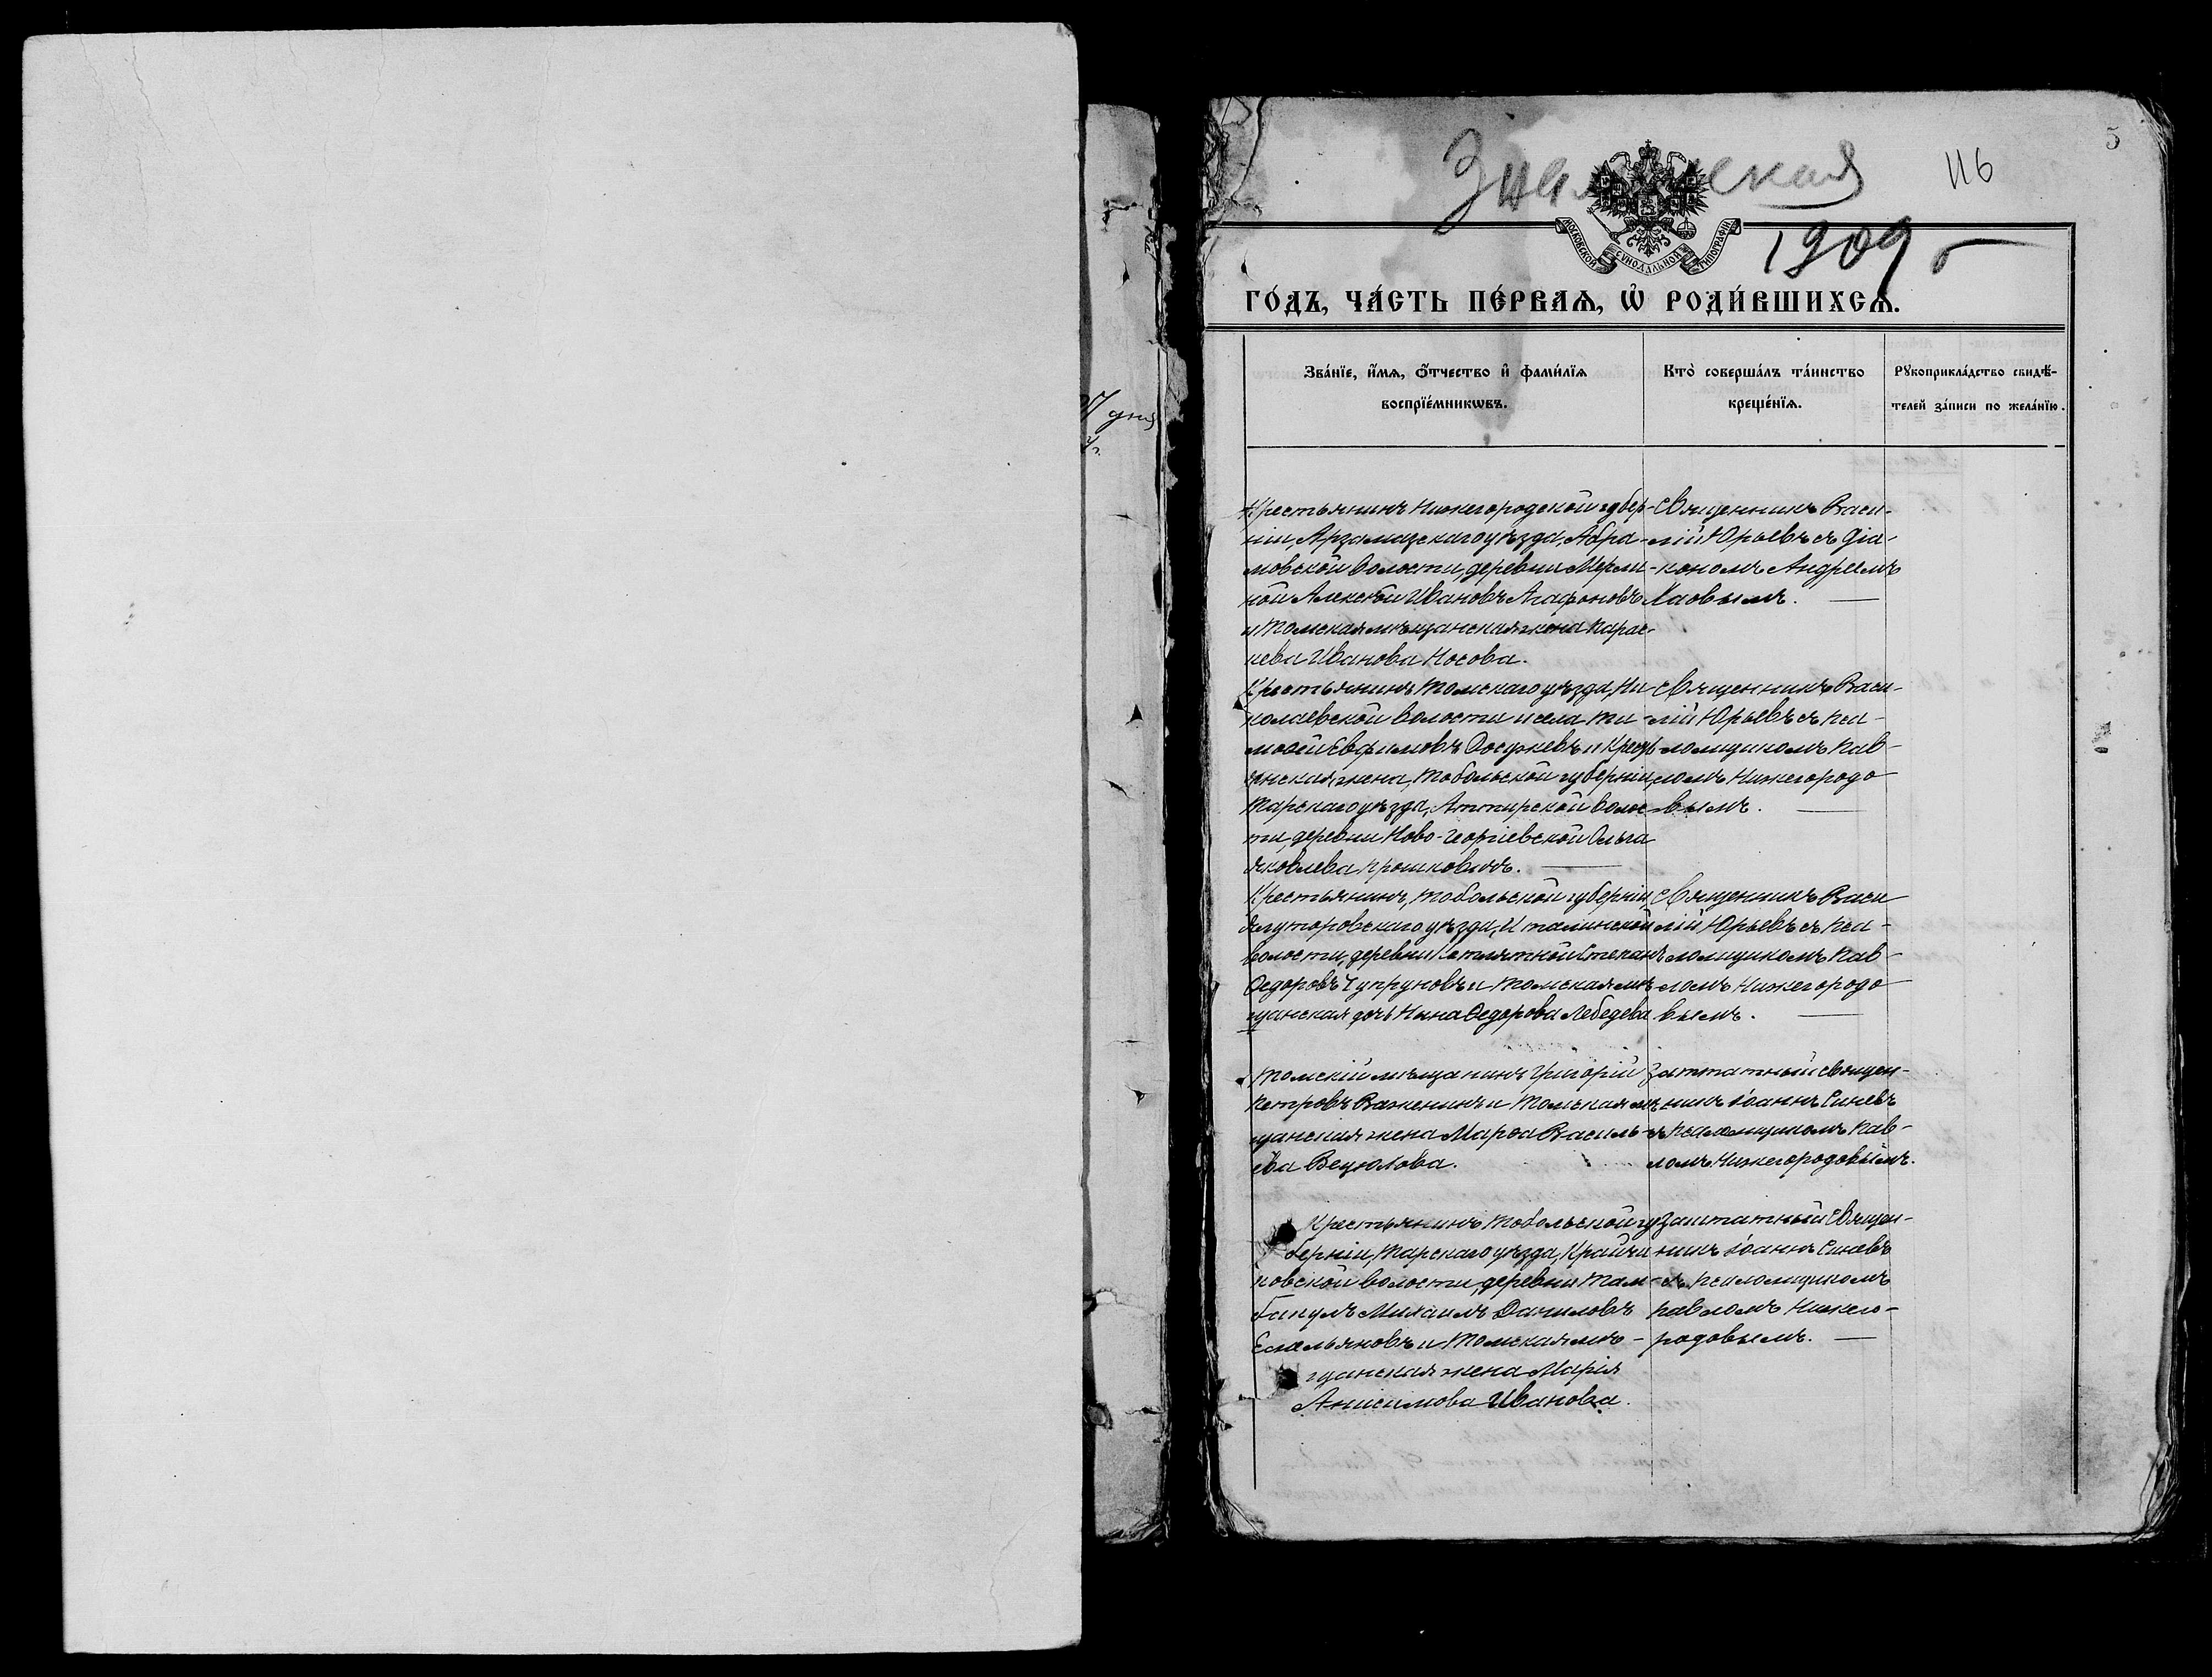 5
116
Знаменская
МОСКОВСКОЙ СѴНОДАЛЬНОЙ ТИПОГРАФІИ
1909 г
ГО́ДЪ, ЧА́СТЬ ПЕ́РВАѦ, Ѡ҆ РОДИ́ВШИХСѦ.
Зва́нїе, и҆́мѧ, ѻ҆́тчество и҆ фами́лїѧ
воспрїе́мникѡвъ.
Кто̀ соверша́лъ та́инство
креще́нїѧ.
Рꙋкоприкла́дство свидѣ́-
телей за́писи по жела́нїю.
дня
Крестьянинъ Нижегородской губер-
ніи, Арзамазскаго уѣзда, Абра-
мовской волости, деревни Мерли-
ной Алексѣй Ивановъ Агафоновъ
и Томская мѣщанская жена Парас-
кева Иванова Носова.
Священникъ Васи-
лій Юрьевъ съ діа-
кономъ Андреемъ
Крестьянинъ Томскаго уѣзда, Ни
колаевской волости и села Ти-
мофей Евфимовъ и Кресть
янская жена, Тобольской губерніи,
Тарскаго уѣзда, Аттирской волос
ти, деревни Ново-Георгіевской Ольга
Яковлева Прошковичъ.
Священникъ Васи-
лій Юрьевъ съ Пса-
ломщикомъ Пав-
ломъ Нижегородо
вымъ.
Крестьянинъ, Тобольской губерніи,
Ялуторовскаго уѣзда,
волости, деревни Степанъ
Ѳедоровъ Чупруновъ и Томская мѣ
щанская дочь Нина Ѳедорова Лебедева
Священникъ Васи
лій Юрьевъ съ Пса-
ломщикомъ Пав-
ломъ Нижегородо
вымъ.
Томскій мѣщанинъ Григорій
Петровъ Важенинъ и Томская мѣ
щанская жена Марѳа Василь-
ева
Заштатный священ-
никъ Іоаннъ Синевъ
съ Псаломщикомъ Пав-
ломъ Нижегородовымъ.
Крестьянинъ Тобольской гу
берніи, Тарскаго уѣзда, Крайчи
ковской волости, деревни Там-
бакулъ Михаилъ Даниловъ
Емельяновъ и Томская мѣ-
щанская жена Марія
Анисимова Иванова.
Заштатный Священ-
никъ Іоаннъ Синевъ
съ Псаломщикомъ
Павломъ Нижего-
родовымъ.